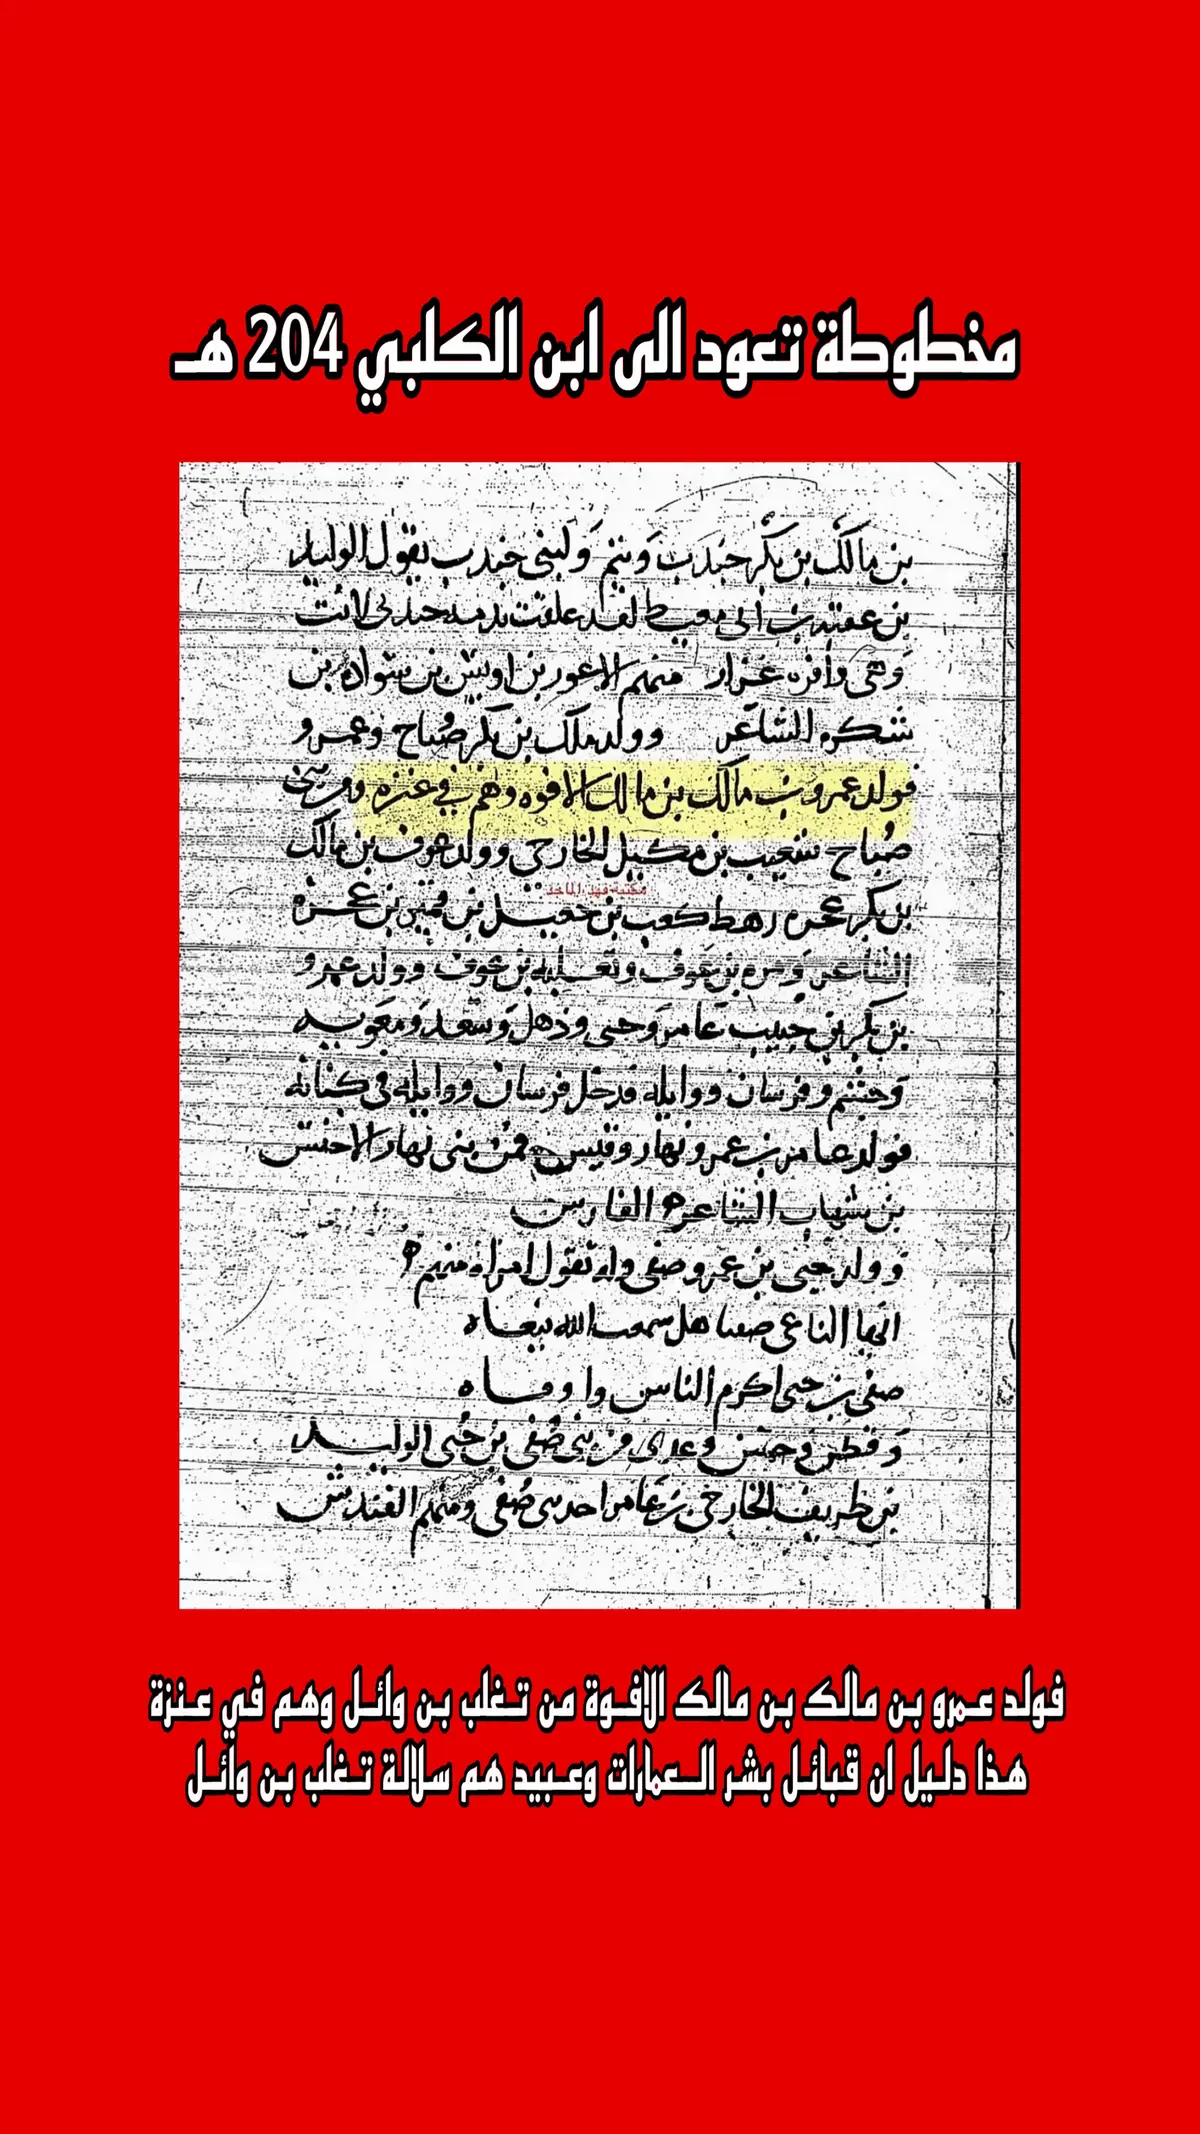 مخطوطة تعود الى ابن الكلبي 204 هـ
بن مالك بن بكر جندب وتيم ولبنى جندب يقول الوليد
بن عقبة بن ابى معيط لقد علقت بذمة حبدلى لانت
وهى وافره غزار منهم الاعور بن اوس بن سواده بن
شكره الشاعر وولد ملك بن بكر صُباح وعمرو
فولد عمرو بن مالك بن مالك الافوه وهم في عنزه ومن بنى
صُباح شعيب بن مكيل الخارجى وولد عوف بن مالك
مكتبة فهد الماجد
بن بكر عجره رهط كعب بن جعيل بن قمير بن عجره
الشاعر ومره بن عوف وثعلبه بن عوف وولد عمرو
بن بكر بن حُبيب عامر وحيى وذهل وسعد ومعويه
وجشم وفرسان ووايله فدخل فرسان ووايله فى كنانه
فولد عامر بن عمرو نهار وقيس فمن بنى نهار الاخنس
بن شهاب الشاعر الفارس
وولد حيى بن عمرو صفى وله تقول امراة منهم
ايها الناعى صفيا هل سمعت الله ينعاه
صفى بن حيى اكرم الناس واوفاه
وقطن وعدى ومن بنى صُفى بن حُيى الوليد
بن طريف الخارجى بن عامر احد بنى صُفى ومنهم الفندش
فولد عمرو بن مالك بن مالك الافوة من تغلب بن وائل وهم في عنزة
هذا دليل ان قبائل بشر العمارات وعبيد هم سلالة تغلب بن وائل